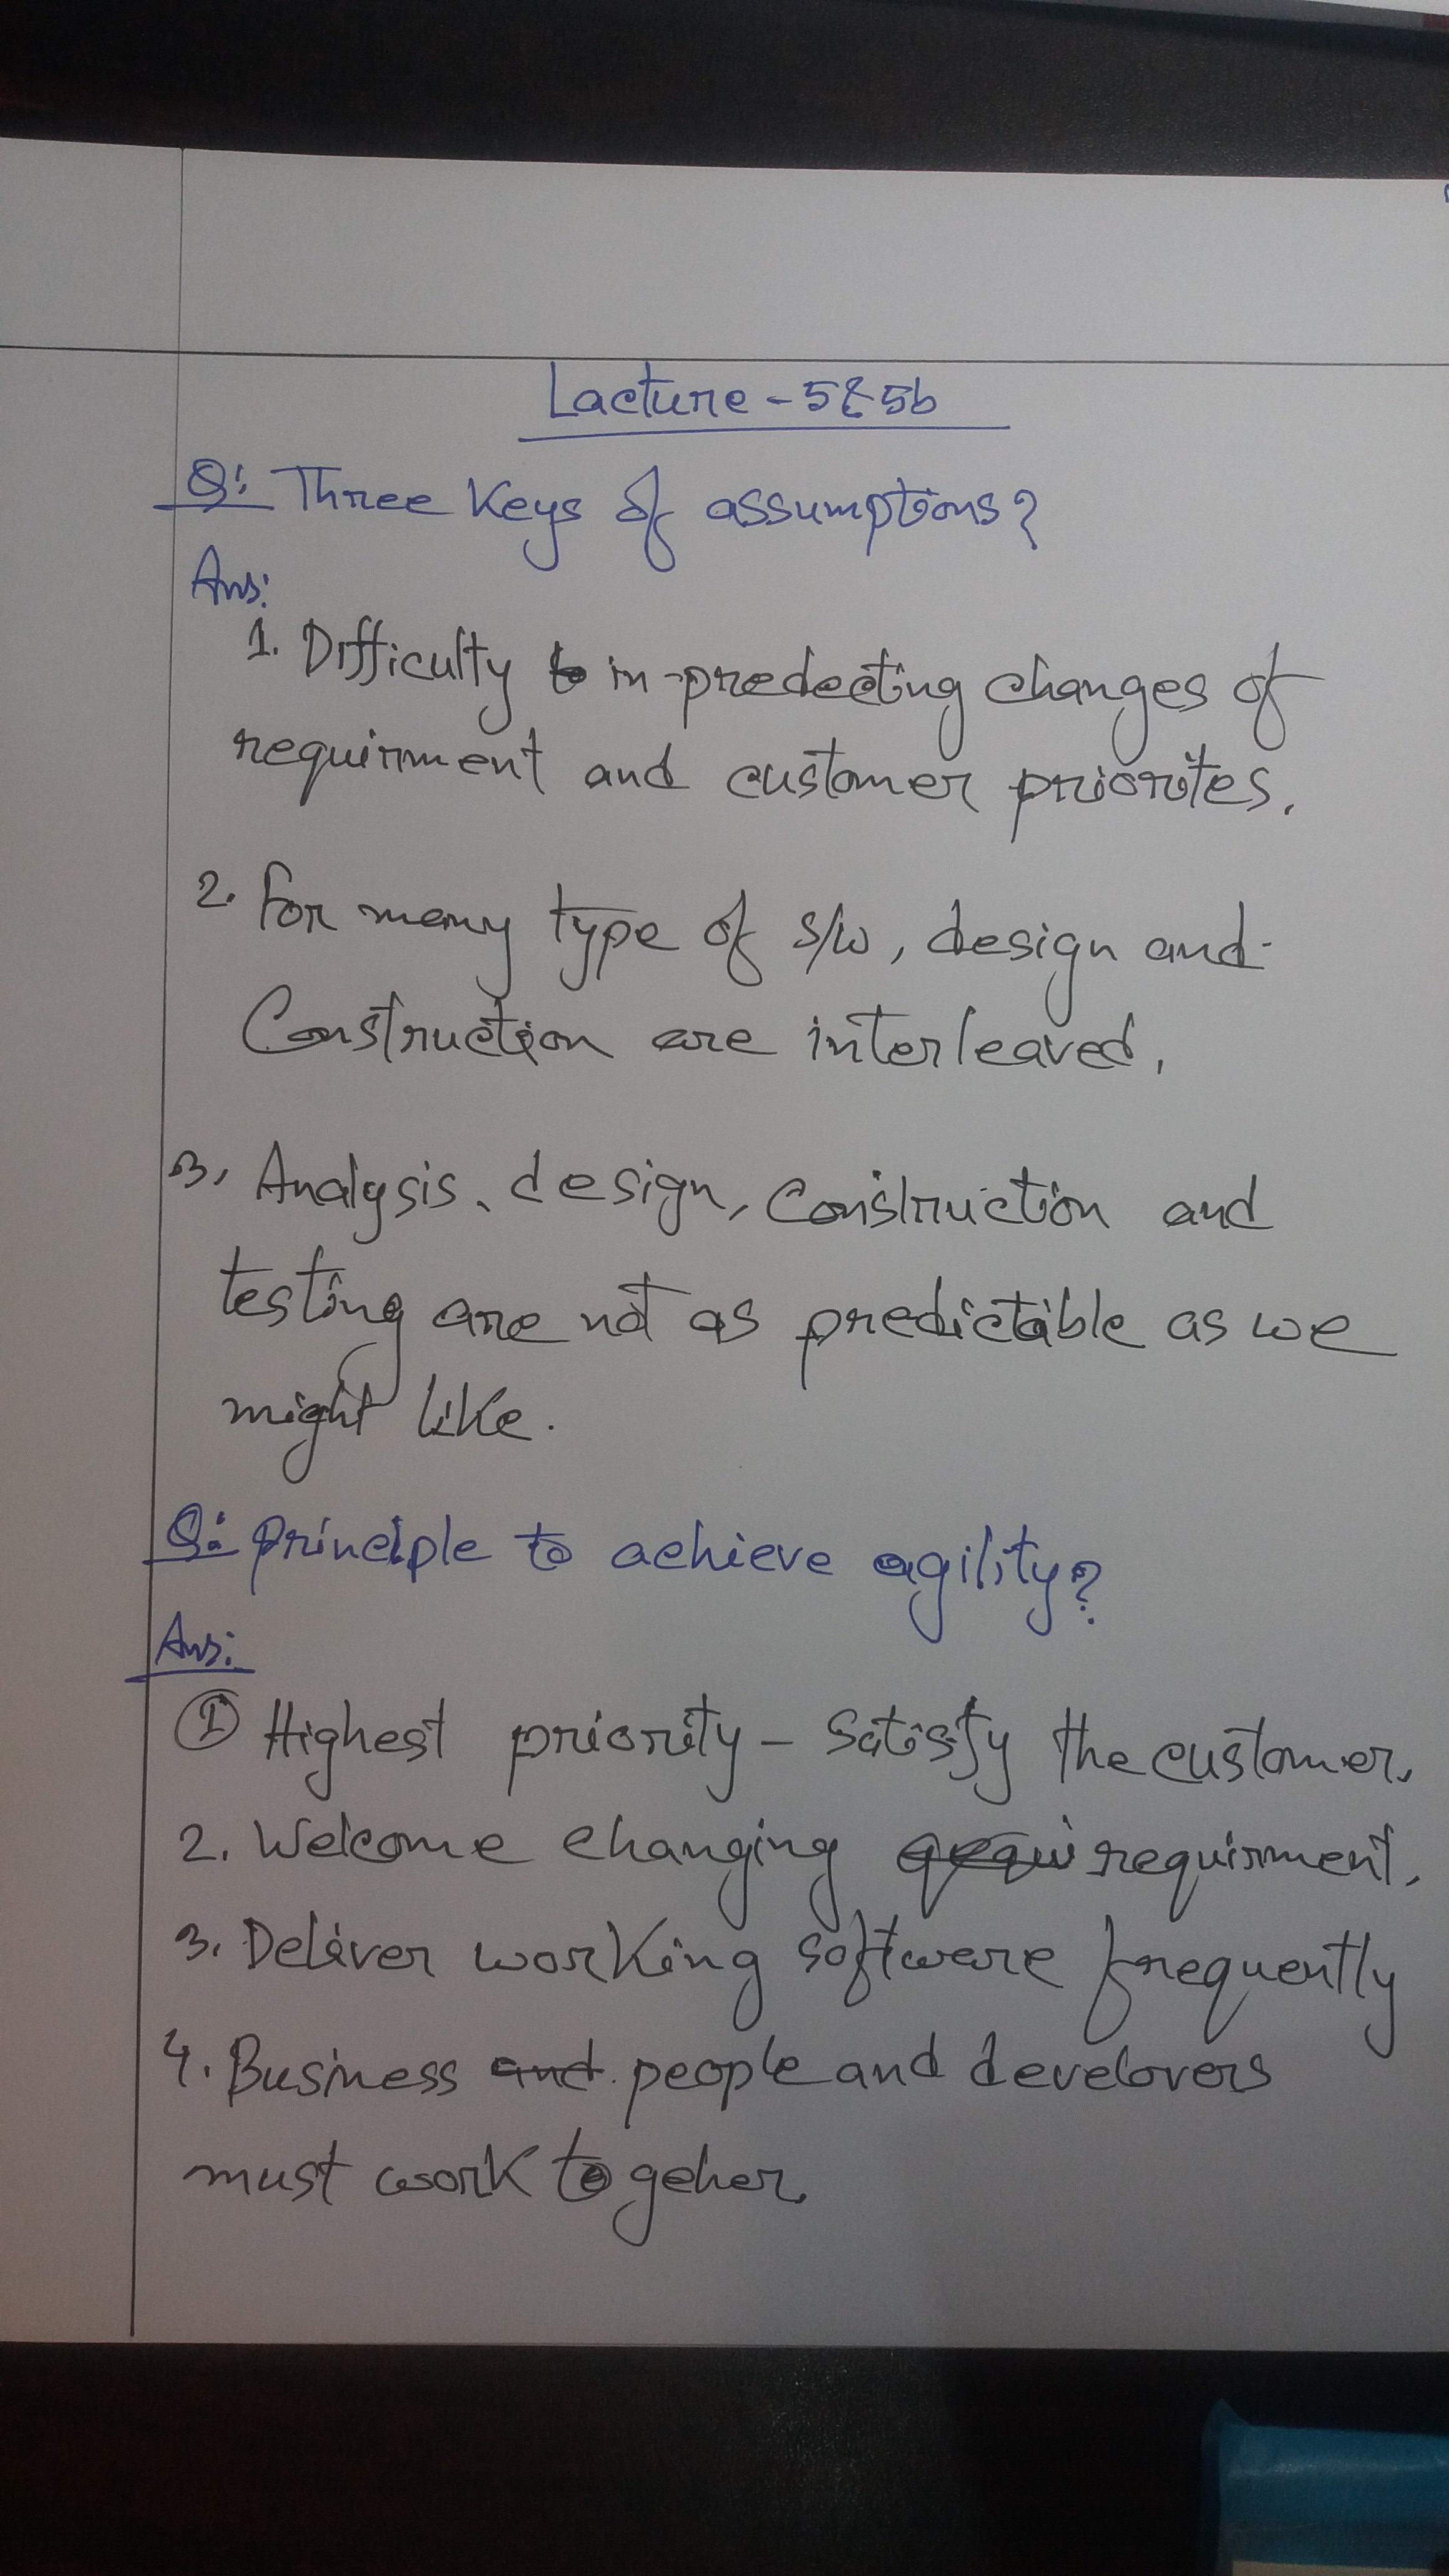 Lacture - 5 & 5b
Q: Three Keys of assumptions?
Ans:
1. Difficulty in predecting changes of
requirment and customer priorites.
2. For many type of s/w, design and
Construction are interleaved.
3. Analysis, design, Construction and
testing are not as predictable as we
might like.
Q: Principle to achieve agility?
Ans:
① Highest priority - Satisfy the customer.
2. Welcome changing requirment.
3. Deliver working software frequently
4. Business and people and develovers
must work togeher.